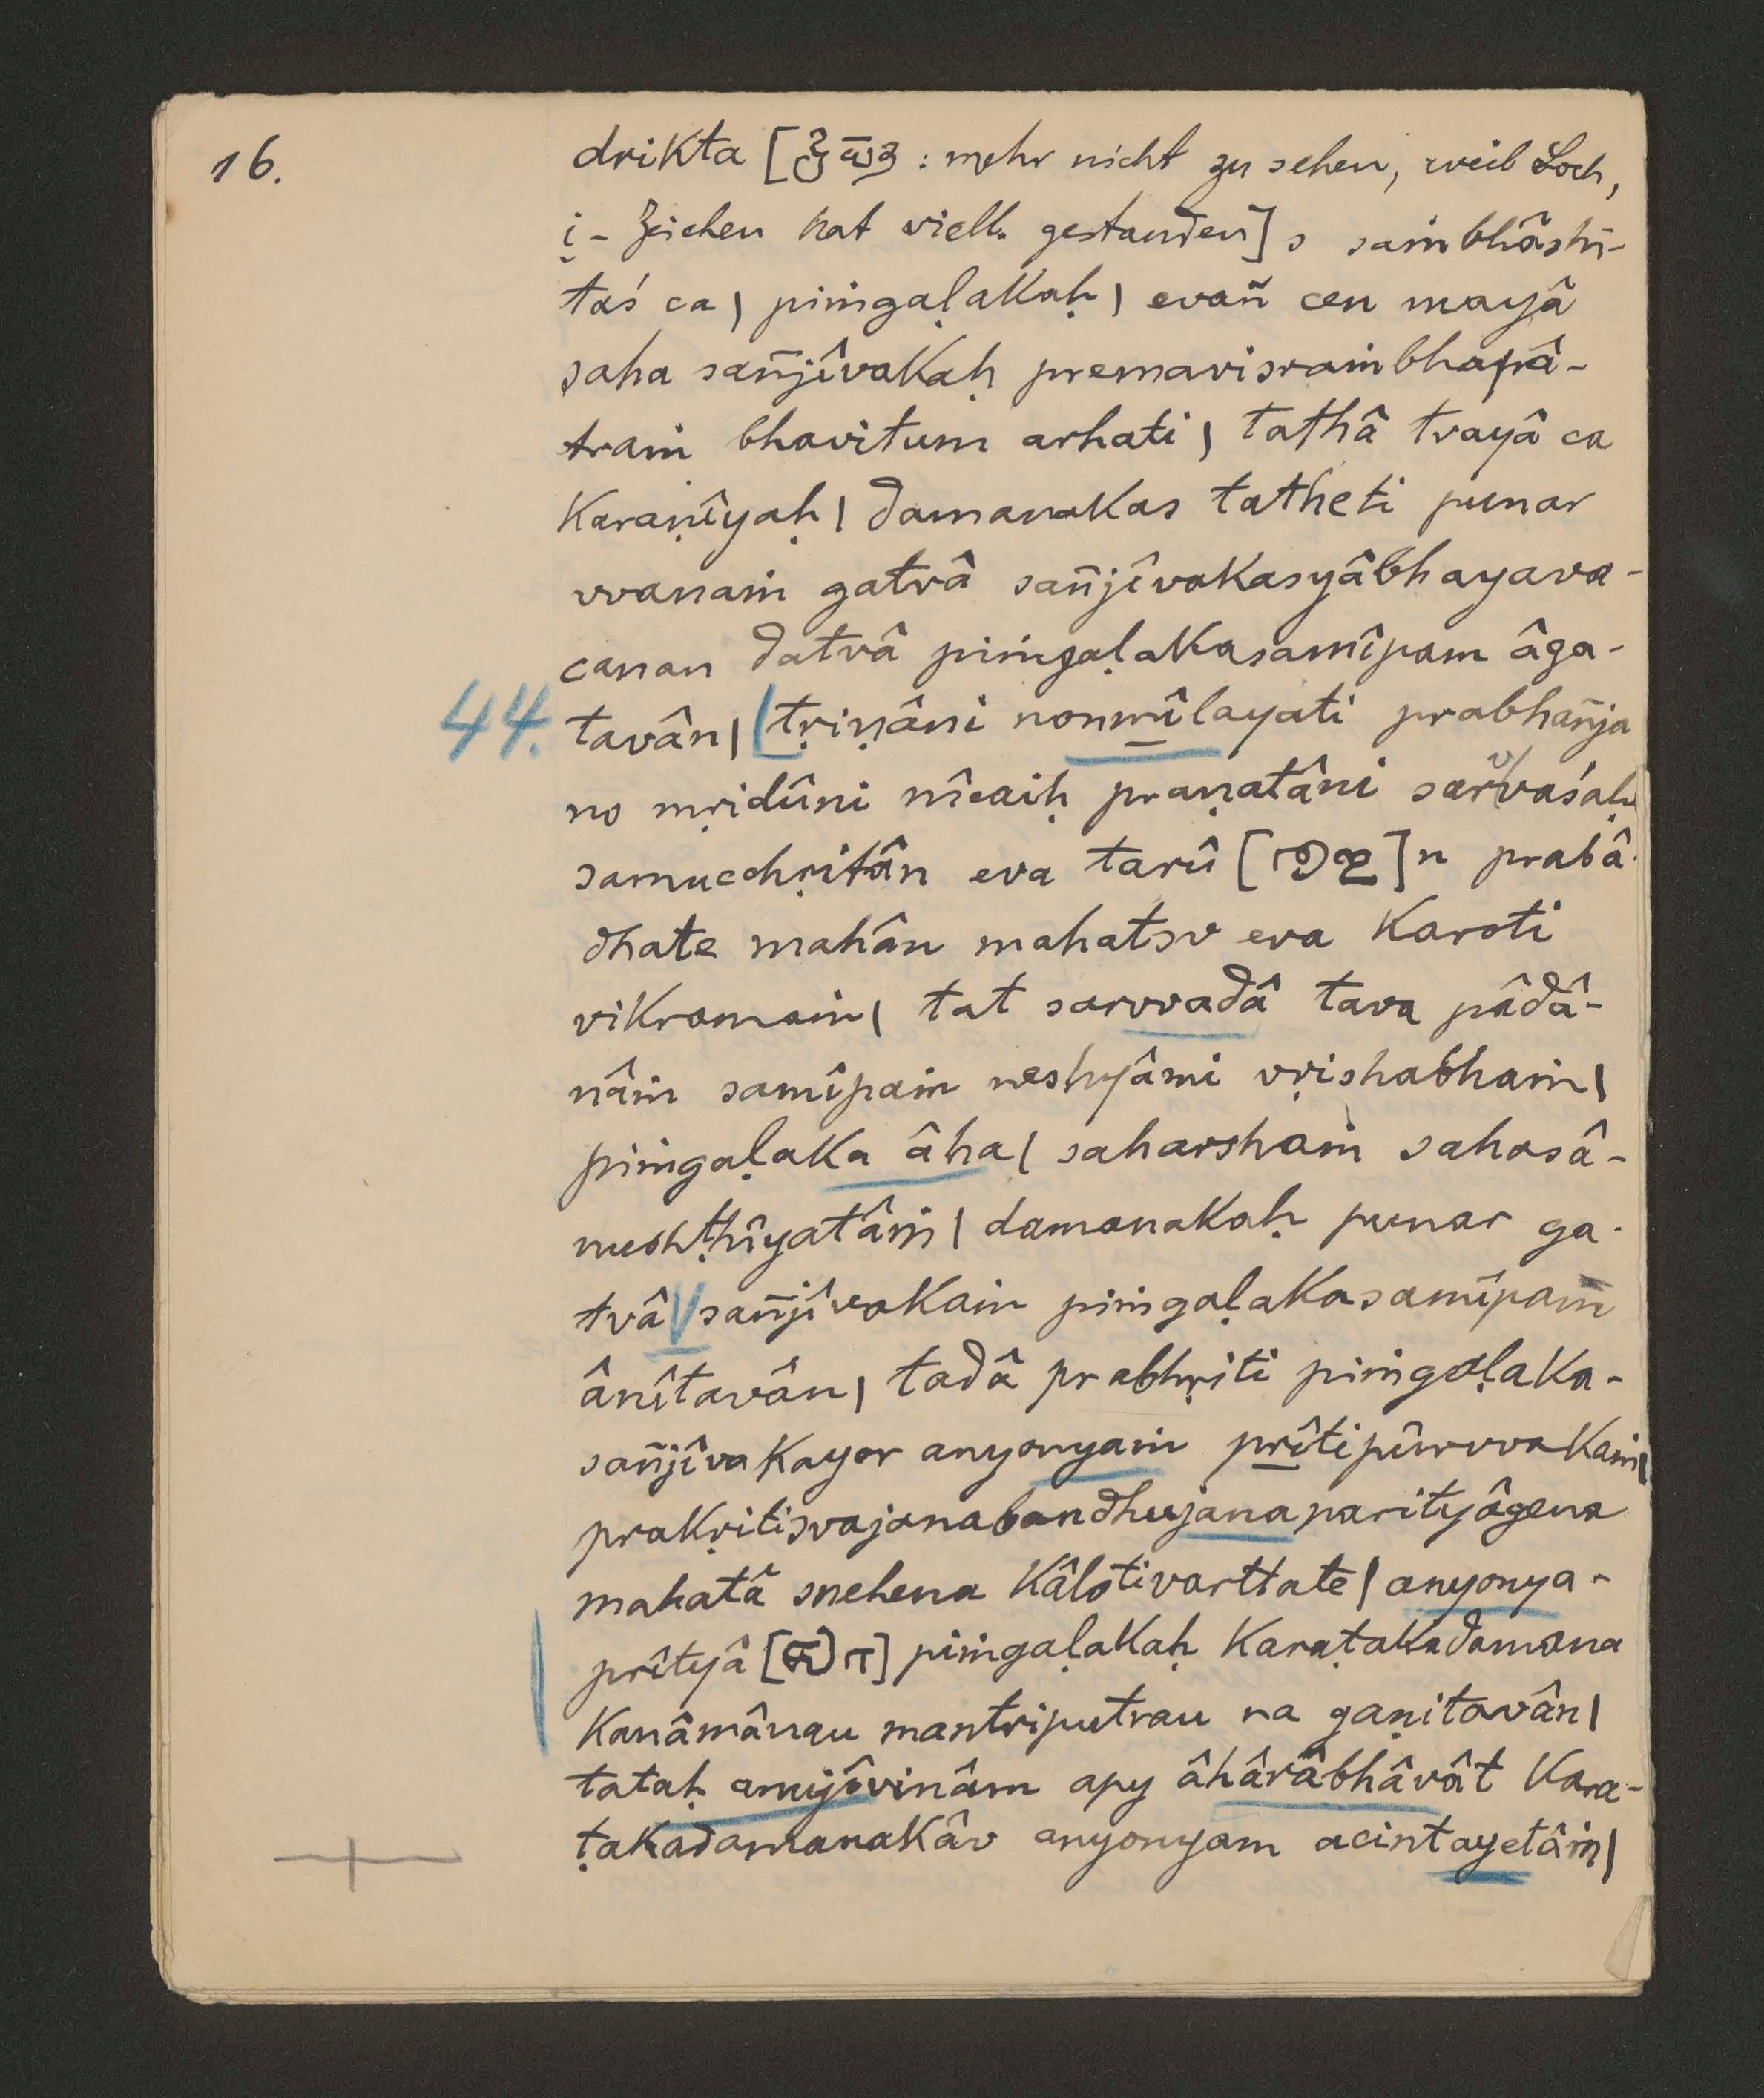 16.
drikta [ : mehr nicht zu sehen, weil Loch,
i - Zeichen hat viell. gestanden] s saṁbhâshi-
taś ca | piṁgaḷakaḥ | evañ cen mayâ
saha sañjîvakaḥ premavisraṁbhapâ-
traṁ bhavitum arhati | tathâ tvayâ ca
karaṇîyaḥ | damanakas tatheti punar
vvanaṁ gatvâ sañjîvakasyâbhayava-
canan datvâ piṁgaḷakasamîpam âga-
44. tavân | [tṛiṇâni nonmîlayati prabhañja
no mṛidûni nîcaiḥ praṇatâni sarvvaśaḥ
samucchṛitân eva tarû [ ]n prabâ-
dhate mahân mahatsv eva karoti
vikramaṁ | tat sarvvadâ tava pâdâ-
nâṁ samîpaṁ neshyâmi vṛishabhaṁ |
piṁgaḷaka âha | saharshaṁ sahasâ-
nushṭhîyatâṁ | damanakaḥ punar ga-
tvâ sañjîvakaṁ piṁgaḷakasamîpam
ânîtavân | tadâ prabhṛiti piṁgaḷaka-
sañjîvakayor anyonyaṁ prîtipûrvvakaṁ |
prakṛitisvajanabandhujanaparityâgena
mahatâ snehena kâlotivarttate | anyonya-
prîtyâ [ ] piṁgaḷakaḥ karaṭakadamana
kanâmânau mantriputrau na gaṇitavân |
tataḥ anujîvinâm apy âhârâbhâvât kara-
ṭakadamanakâv anyonyam acintayetâṁ |